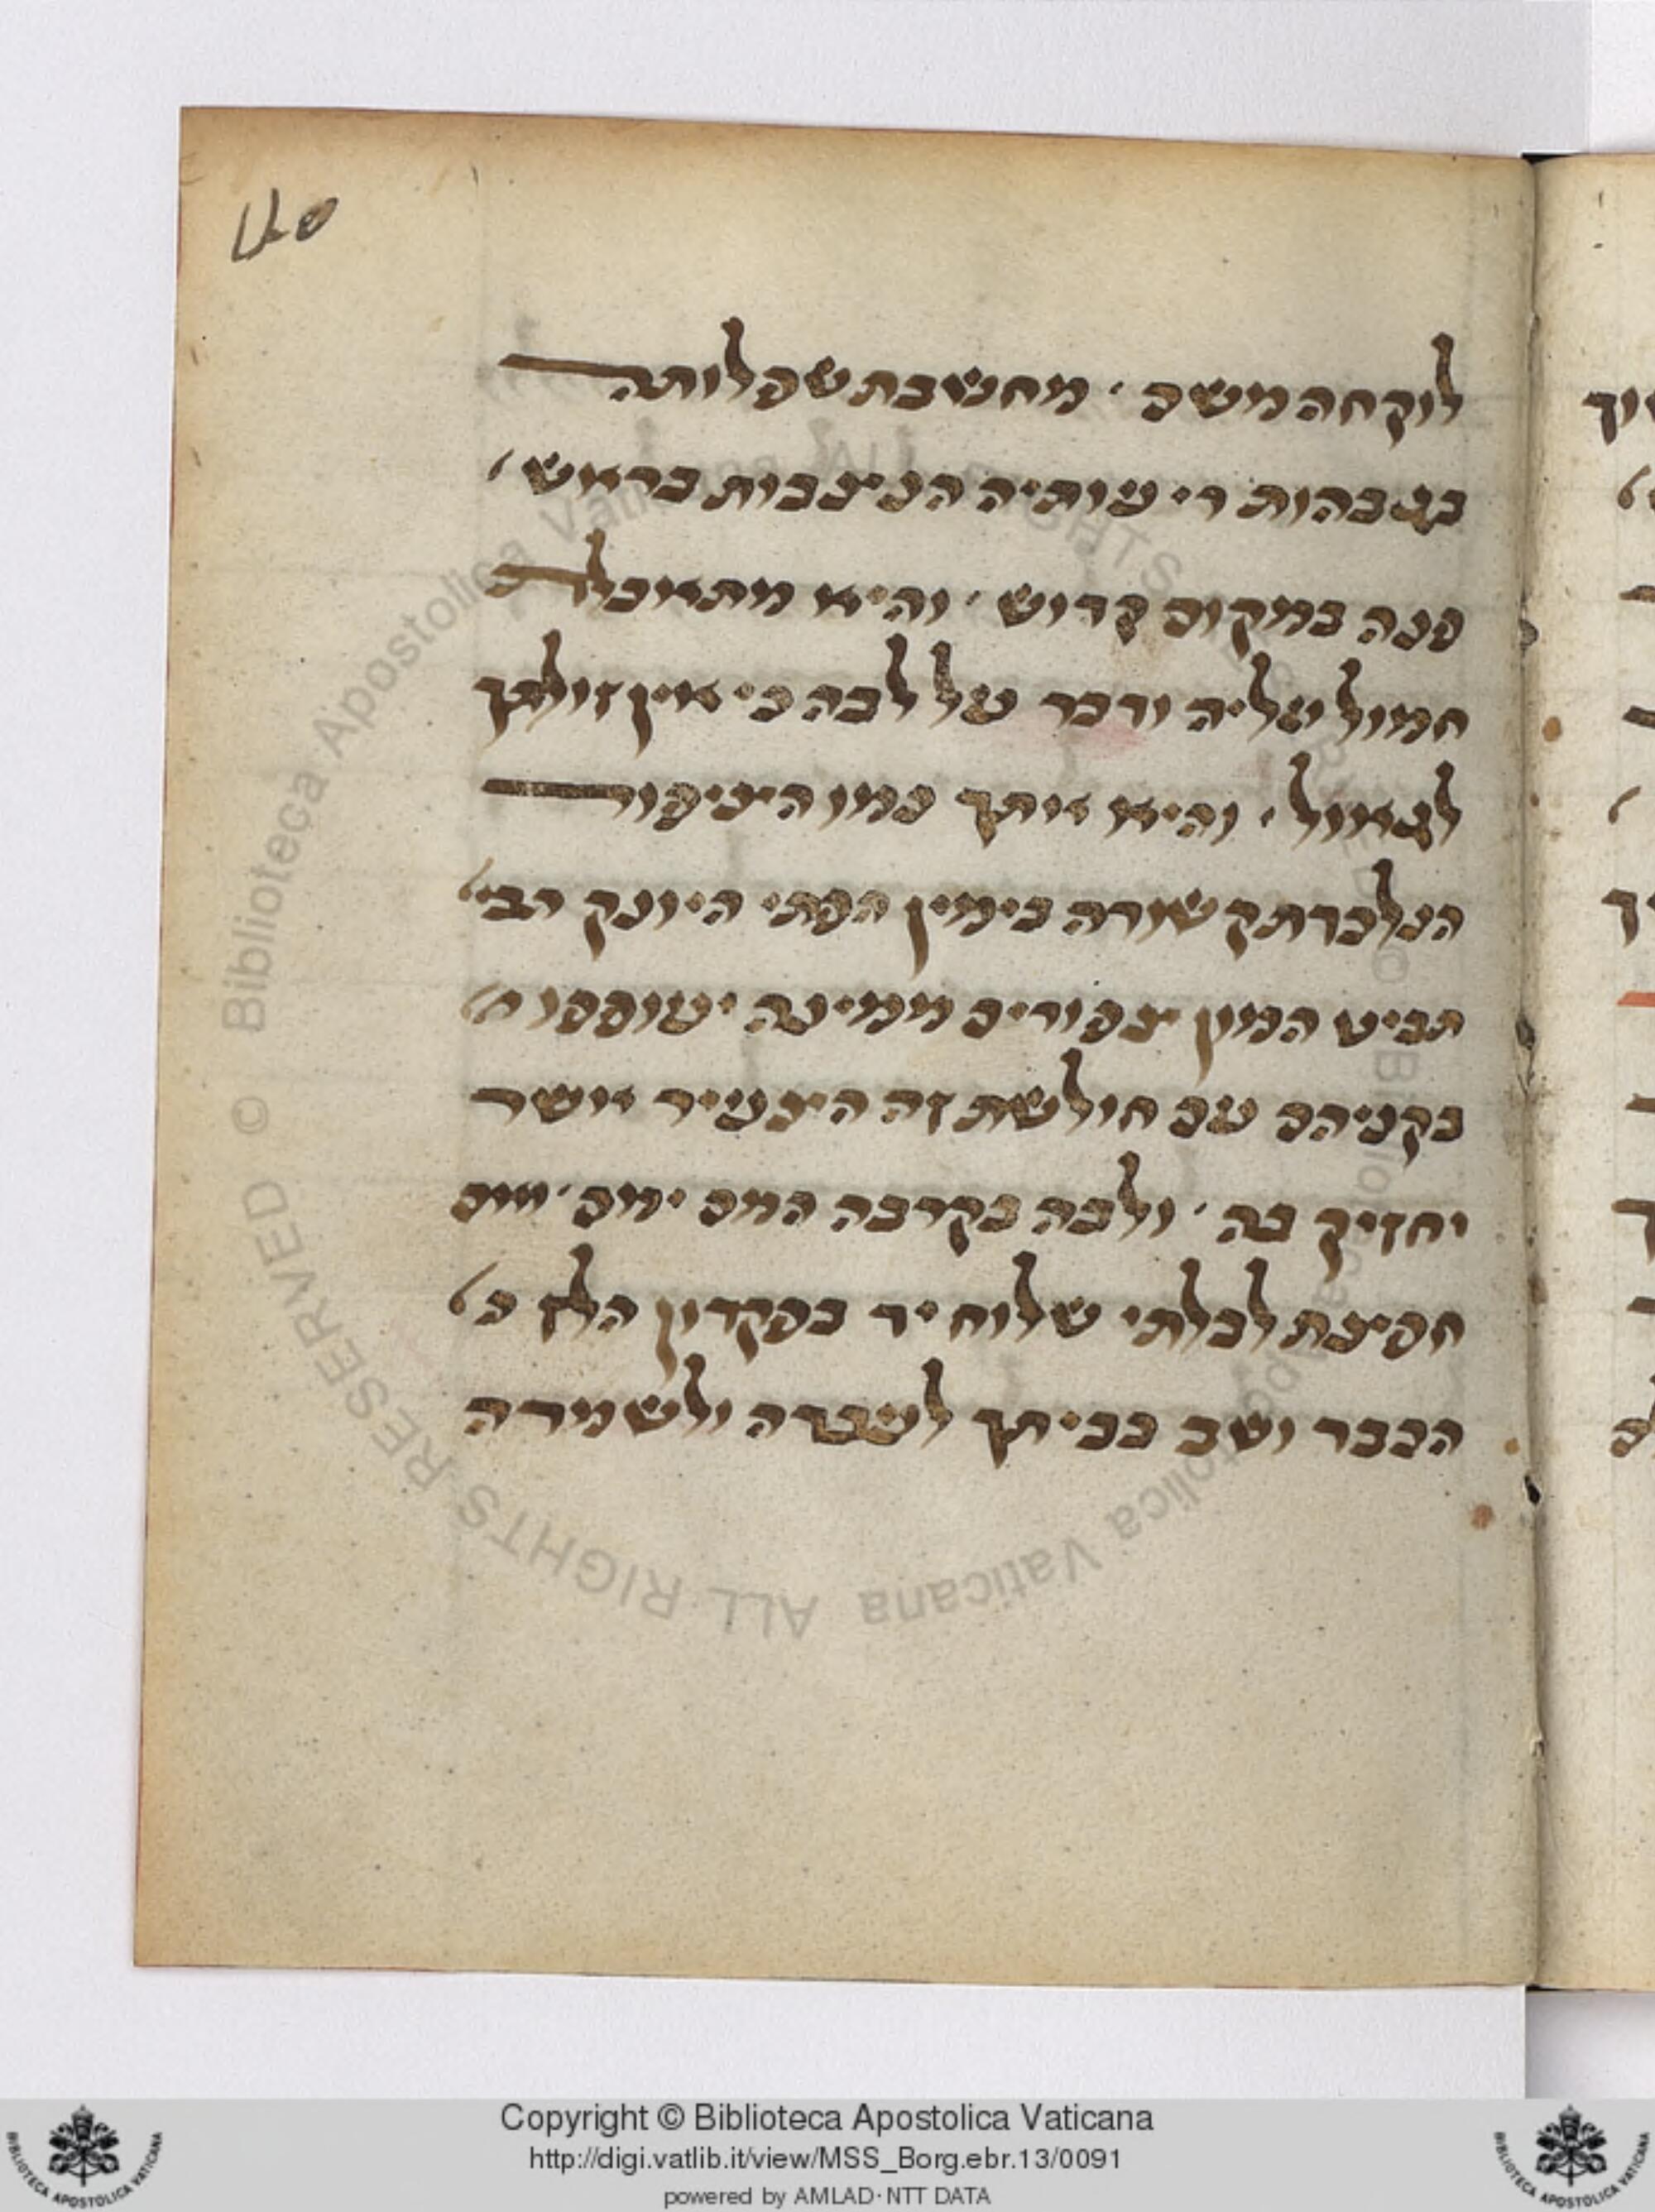 40
לוקחה משם · מחשבת שפלותה
בגבהות ריעותיה הניצבות בראש
פנה במקום קדוש · והיא מתאבלת
חמול עליה ודבר על לבה כי אין זולתך
לגאול · והיא איתך כמו הציפור
הנלכדת קשורה בימין הפתי היונק הבי׳
תביט המון צפורים ממינה יעופפו ה׳
בקניהם עם חולשת זה הצעיר אשר
יחזיק בה · ולבה בקרבה המם ימס · שים
חפיצת לבלתי שלוח יד בפקדון הלז כ׳
הנכבד ושב בביתך לעבדה ולשמרה
Copyright © Biblioteca Apostolica Vaticana
http://digi.vatlib.it/view/MSS_Borg.ebr.13/0091
powered by AMLAD·NTT DATA